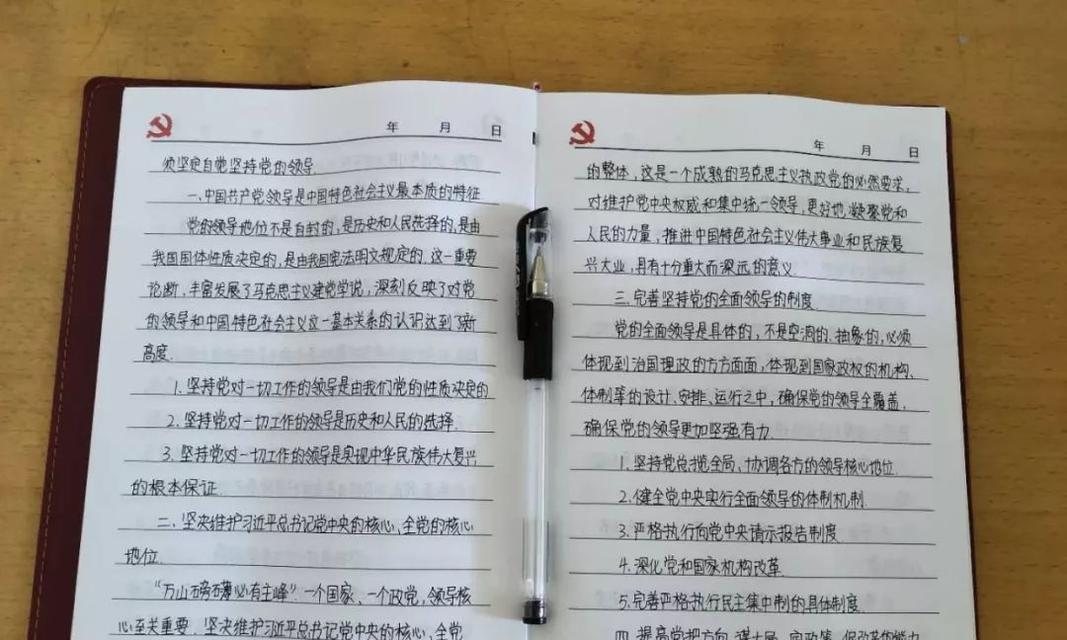 年 月 日
须坚定自觉坚持党的领导.
一、中国共产党领导是中国特色社会主义最本质的特征
党的领导地位不是自封的,是历史和人民选择的,是由
我国国体性质决定的,是由我国宪法明文规定的.这一重要
论断,丰富发展了马克思主义建党学说,深刻反映了对党
的领导和中国特色社会主义这一基本关系的认识达到了新
高度.
1.坚持党对一切工作的领导是由我们党的性质决定的
2.坚持党对一切工作的领导是历史和人民的选择.
3.坚持党对一切工作的领导是实现中华民族伟大复兴
的根本保证.
二、坚决维护习近平总书记党中央的核心、全党的核心
地位.
“万山磅礴必有主峰”.一个国家、一个政党,领导核
心至关重要.坚决维护习近平总书记党中央的核心、全党
年 月 日
的整体,这是一个成熟的马克思主义执政党的必然要求,
对维护党中央权威和集中统一领导,更好地凝聚党和
人民的力量,推进中国特色社会主义伟大事业和民族复
兴大业,具有十分重大而深远的意义.
三.完善坚持党的全面领导的制度.
党的全面领导是具体的,不是空洞的、抽象的,必须
体现到治国理政的方方面面,体现到国家政权的机构、
体制等的设计、安排、运行之中,确保党的领导全覆盖,
确保党的领导更加坚强有力.
1.坚持党总揽全局、协调各方的领导核心地位.
2.健全党中央实行全面领导的体制机制.
3.严格执行向党中央请示报告制度.
4.深化党和国家机构改革.
5.完善严格执行民主集中制的具体制度.
四.提高党把方向、谋大局、定政策、促改革的能力